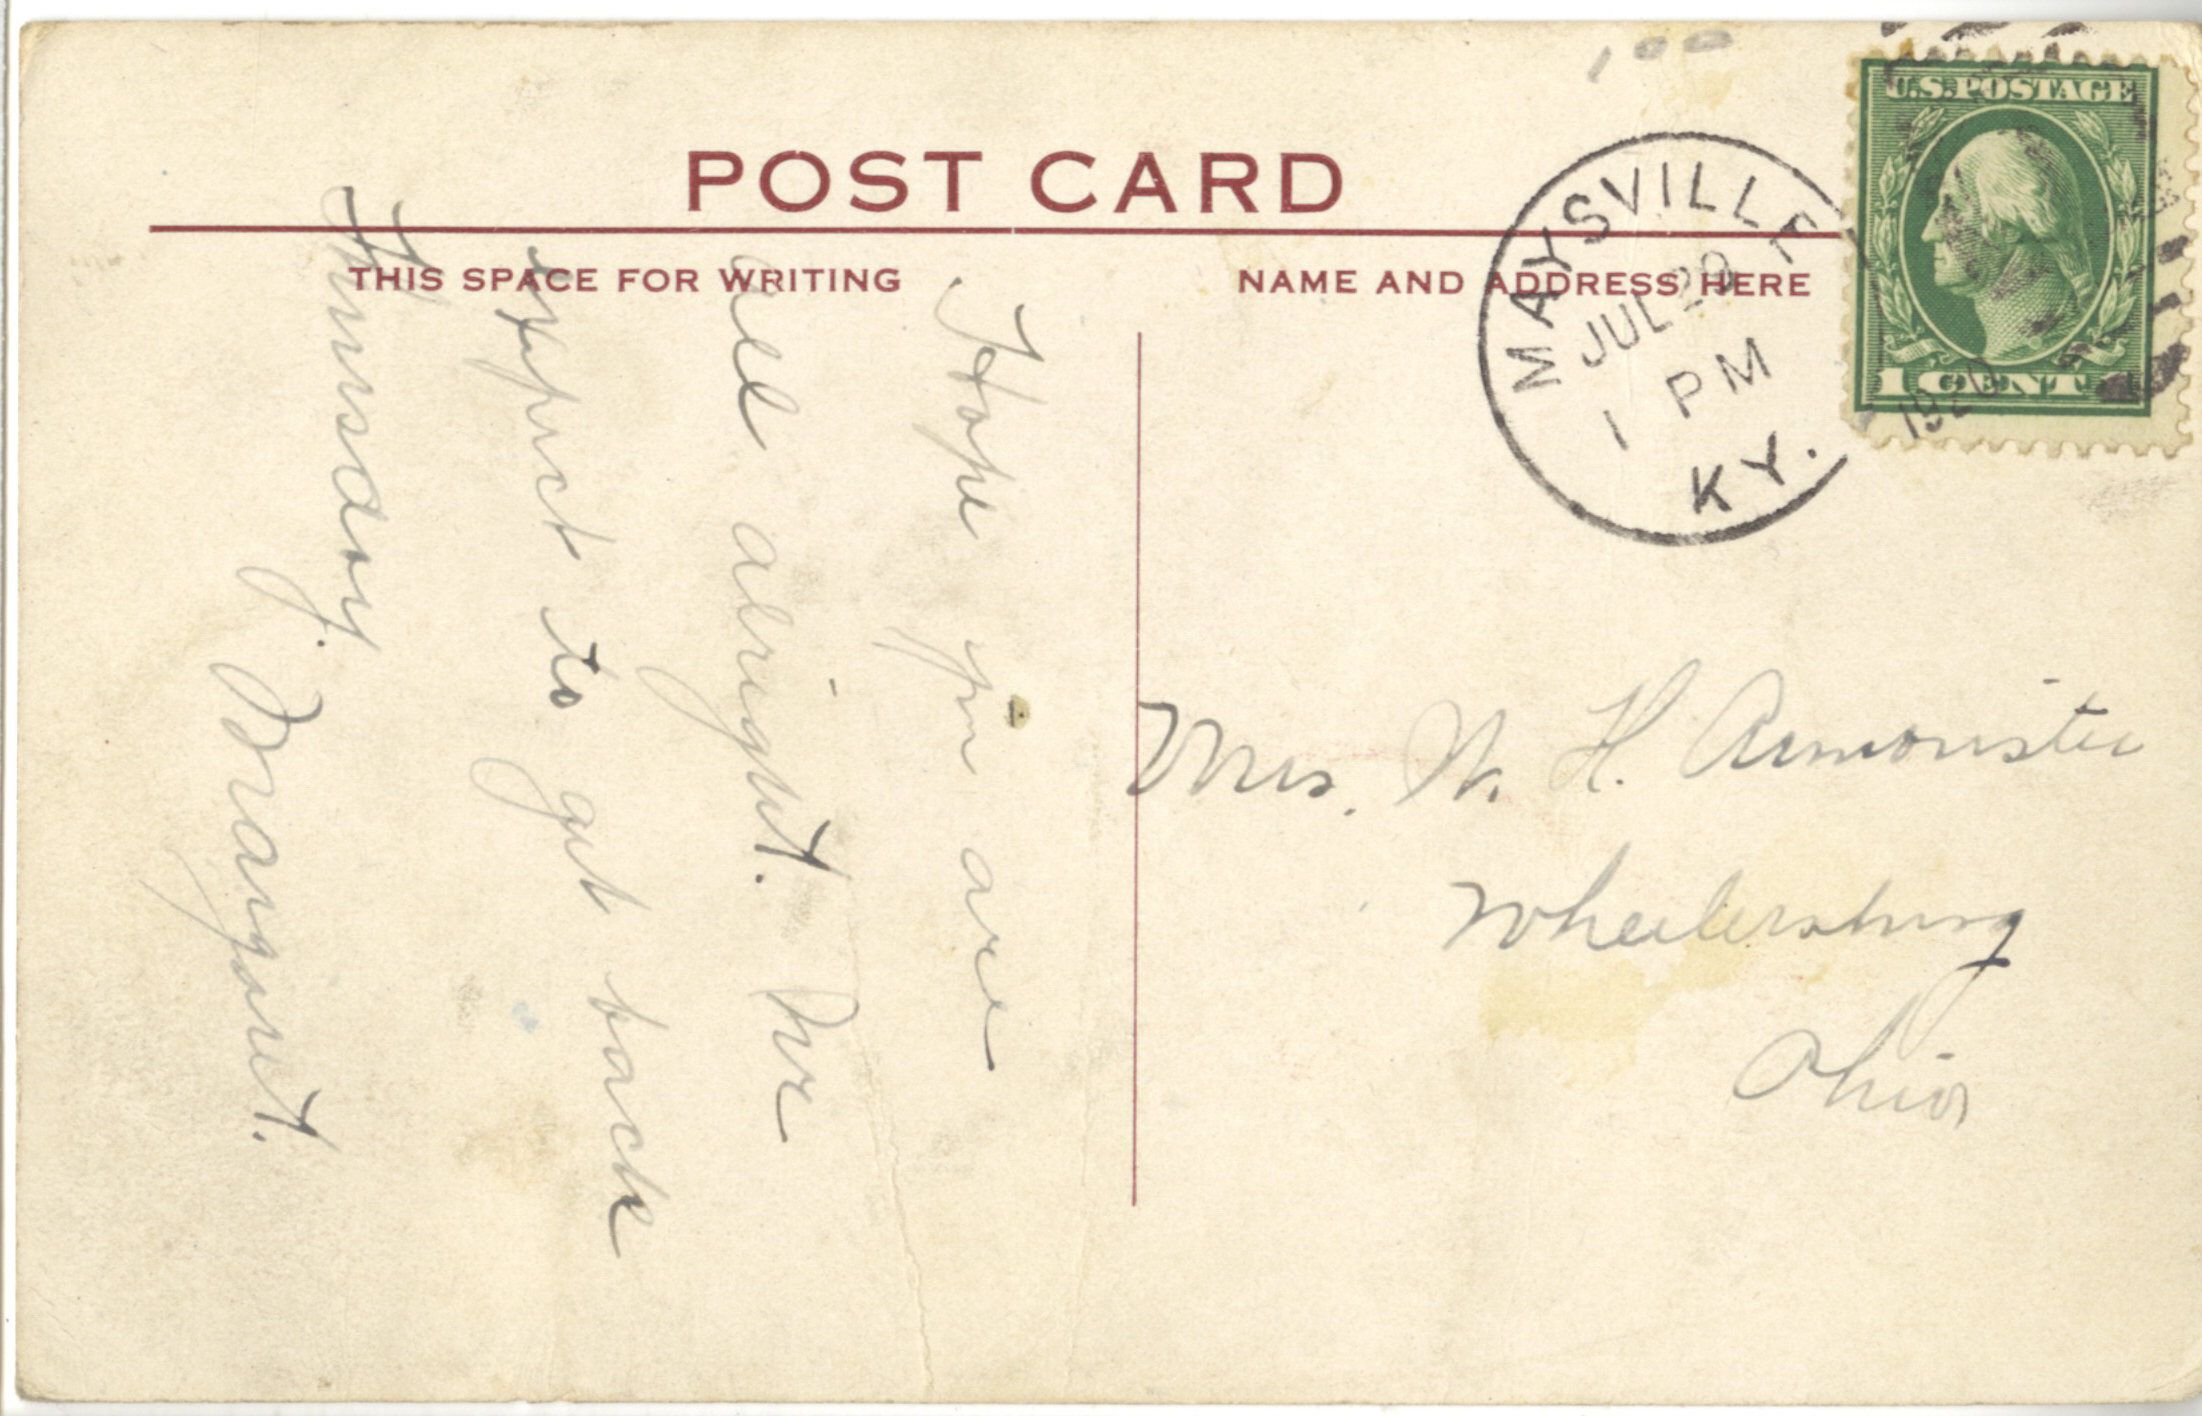 POST CARD
THIS SPACE FOR WRITING
NAME AND ADDRESS HERE
MAYSVILLE
JUL 29
1 PM
1920
KY.
U.S. POSTAGE
1 CENT
Hope you are
all alright. We
expect to get back
Thursday.
Margaret.
Mrs. W. H. Armonister
Wheelersburg
Ohio